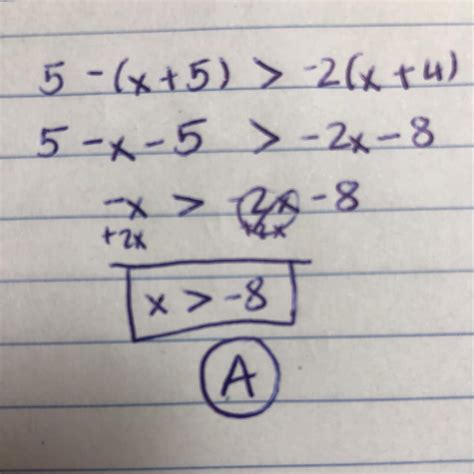 5 -(x+5) > -2(x+4)
5 -x-5 > -2x-8
-x > -2x -8
+2x +2x
x > -8
A